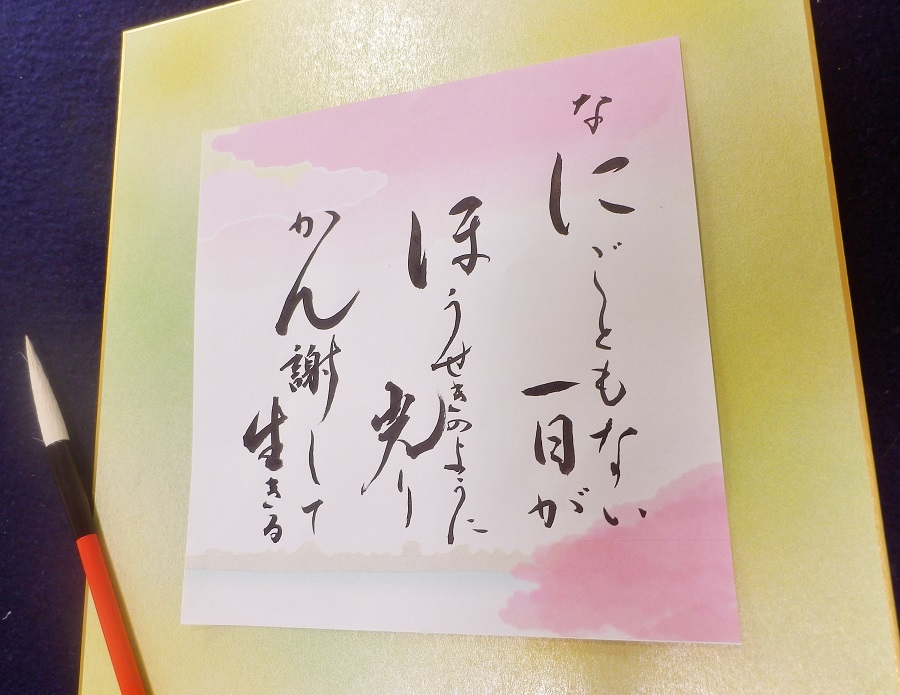 なにごともない
一日が
ほうせきのように
光り
かん謝して
生きる